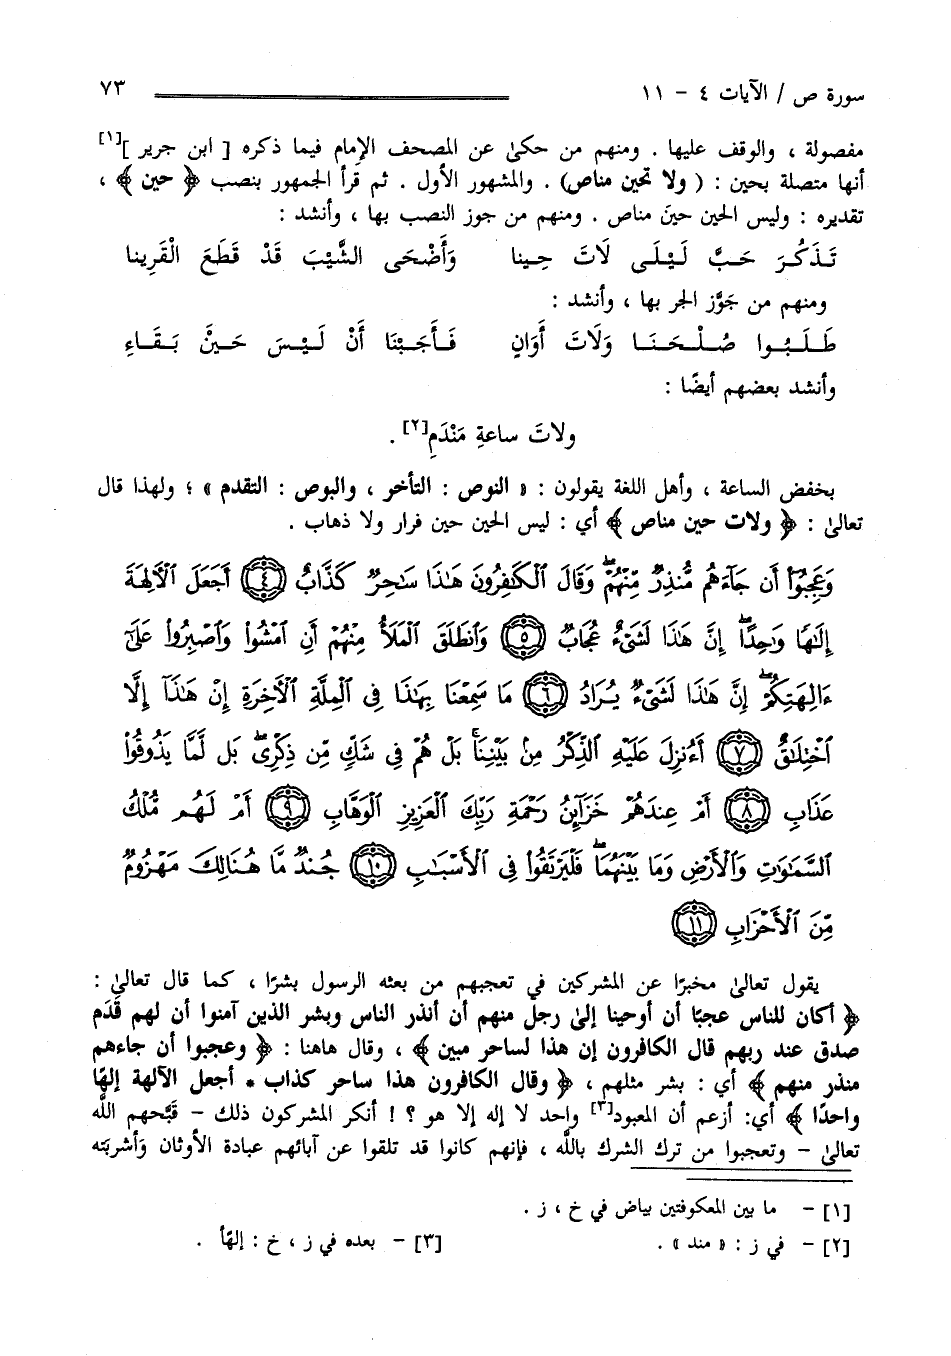 سورة ص / الآيات ٤ - ١١ ٧٣
مفصولة ، والوقف عليها . ومنهم من حكىٰ عن المصحف الإمام فيما ذكره [ ابن جرير ][١]
أنها متصلة بحين : ( ولا تحين مناص) . والمشهور الأول . ثم قرأ الجمهور بنصب ﴿ حين ﴾ ،
تقديره : وليس الحين حينَ مناص . ومنهم من جوز النصب بها ، وأنشد :
تَذَكُرَ حَبَّ لَيْلَى لَاتَ حِينا وَأَضْحَى الشَّيْبَ قَدْ قَطَعَ الْقَرِينا
ومنهم من جَوَّز الجر بها ، وأنشد :
طَلَبُوا صُلْحَنَا وَلَاتَ أَوَانٍ فَأَجَبْنَا أَنْ لَيْسَ حَينَّ بَقَاءِ
وأنشد بعضهم أيضًا :
ولاتَ ساعةِ مَنْدَمِ[٢] .
بخفض الساعة ، وأهل اللغة يقولون : « النوص : التأخر ، والبوص : التقدم » ؛ ولهذا قال
تعالىٰ : ﴿ ولات حين مناص ﴾ أي : ليس الحين حين فرار ولا ذهاب .
وَعَجِبُوٓا۟ أَن جَآءَهُم مُّنذِرٌ مِّنْهُمْ ۖ وَقَالَ ٱلْكَـٰفِرُونَ هَـٰذَا سَـٰحِرٌ كَذَّابٌ ﴿٤﴾ أَجَعَلَ ٱلْـَٔالِهَةَ
إِلَـٰهًا وَٰحِدًا ۖ إِنَّ هَـٰذَا لَشَىْءٌ عُجَابٌ ﴿٥﴾ وَٱنطَلَقَ ٱلْمَلَأُ مِنْهُمْ أَنِ ٱمْشُوا۟ وَٱصْبِرُوا۟ عَلَىٰٓ
ءَالِهَتِكُمْ ۖ إِنَّ هَـٰذَا لَشَىْءٌ يُرَادُ ﴿٦﴾ مَا سَمِعْنَا بِهَـٰذَا فِى ٱلْمِلَّةِ ٱلْـَٔاخِرَةِ إِنْ هَـٰذَآ إِلَّا
ٱخْتِلَـٰقٌ ﴿٧﴾ أَءُنزِلَ عَلَيْهِ ٱلذِّكْرُ مِنۢ بَيْنِنَا ۚ بَلْ هُمْ فِى شَكٍّ مِّن ذِكْرِى ۖ بَل لَّمَّا يَذُوقُوا۟
عَذَابِ ﴿٨﴾ أَمْ عِندَهُمْ خَزَآئِنُ رَحْمَةِ رَبِّكَ ٱلْعَزِيزِ ٱلْوَهَّابِ ﴿٩﴾ أَمْ لَهُم مُّلْكُ
ٱلسَّمَـٰوَٰتِ وَٱلْأَرْضِ وَمَا بَيْنَهُمَا ۖ فَلْيَرْتَقُوا۟ فِى ٱلْأَسْبَـٰبِ ﴿١٠﴾ جُندٌ مَّا هُنَالِكَ مَهْزُومٌ
مِّنَ ٱلْأَحْزَابِ ﴿١١﴾
يقول تعالىٰ مخبرًا عن المشركين في تعجبهم من بعثه الرسول بشرًا ، كما قال تعالىٰ :
﴿ أكان للناس عجبًا أن أوحينا إلىٰ رجل منهم أن أنذر الناس وبشر الذين آمنوا أن لهم قَدَم
صدق عند ربهم قال الكافرون إن هذا لساحر مبين ﴾ ، وقال هاهنا : ﴿ وعجبوا أن جاءهم
منذر منهم ﴾ أي : بشر مثلهم ، ﴿ وقال الكافرون هذا ساحر كذاب * أجعل الآلهة إلهًا
واحدًا ﴾ أي: أزعم أن المعبود[٣] واحد لا إله إلا هو ؟ ! أنكر المشركون ذلك - قَبَّحهم الله
تعالىٰ - وتعجبوا من ترك الشرك بالله ، فإنهم كانوا قد تلقوا عن آبائهم عبادة الأوثان وأشربَته
[١] - ما بين المعكوفتين بياض في خ ، ز .
[٢] - في ز : « مند » . [٣] - بعده في ز ، خ : إلهًا .